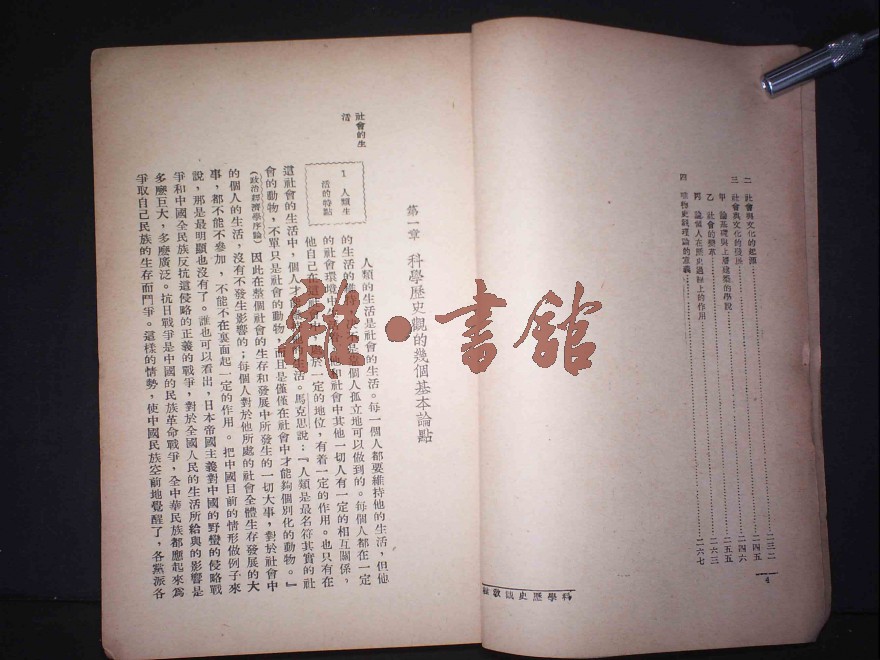 二 社會與文化的起源……二三二
三 社會與文化的發展……二四五
甲 論基礎與上層建築的學說……二四六
乙 社會的變革……二五五
丙 論個人在歷史過程上的作用……二六三
四 唯物史觀理論的意義……二六七
4
科學歷史觀教程
第一章 科學歷史觀的幾個基本論點
1 人類生
活的特點
社會的生
活
人類的生活是社會的生活。每一個人都要維持他的生活,但他
的生活的維持,個人孤立地可以做到的。每個人都在一定
的社會環境中和社會中其他一切人有一定的相互關係,
他自己在一定的地位,有着一定的作用。也只有在
這社會的生活中,個人才生活。馬克思說:「人類是最名符其實的社
會的動物,不單只是社會的動物,而且是僅僅在社會中才能夠個別化的動物。」
(政治經濟學序論)因此在整個社會的生存和發展中所發生的一切大事,對於社會中
的個人的生活,沒有不發生影響的;每個人對於他所處的社會全體生存發展的大
事,都不能不參加,不能不在裏面起一定的作用。把中國目前的情形做例子來
說,那是最明顯也沒有了。誰也可以看出,日本帝國主義對中國的野蠻的侵略戰
爭和中國全民族反抗這侵略的正義的戰爭,對於全國人民的生活所給與的影響是
多麼巨大,多麼廣泛。抗日戰爭是中國的民族革命戰爭,全中華民族都應起來為
爭取自己民族的生存而鬥爭。這樣的情勢,使中國民族空前地覺醒了,各黨派各
雜·書館